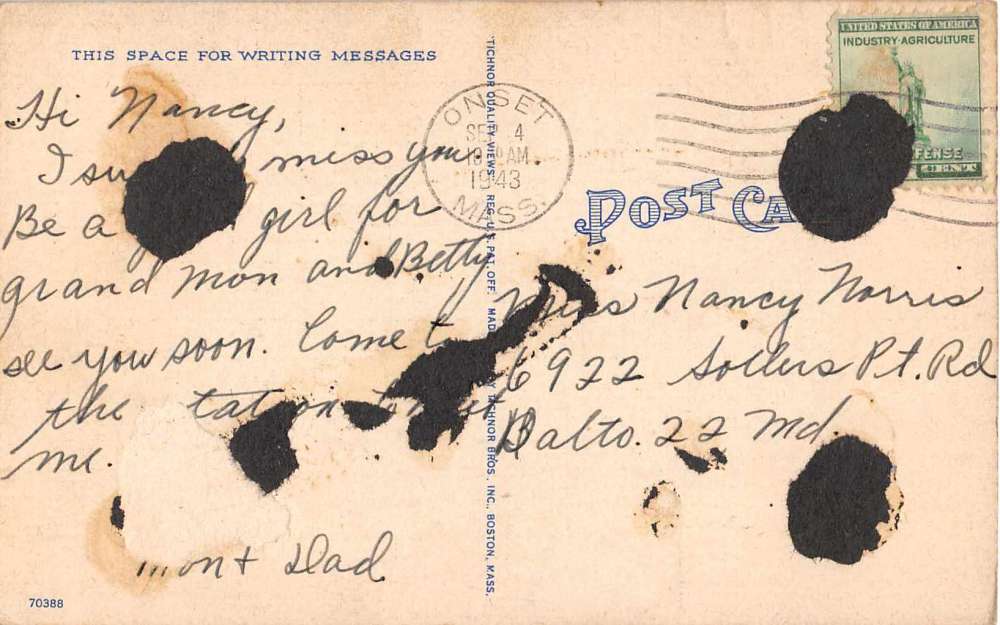 THIS SPACE FOR WRITING MESSAGES
Hi Nancy,
I miss you.
Be a girl for
grand mon and Betty
see you soon. Come to
the
me.
mon + Dad
70388
TICHNOR QUALITY VIEWS, REG. U. S. PAT. OFF. MADE BY TICHNOR BROS., INC., BOSTON, MASS.
ONSET
SEP 4
AM
1943
MASS.
UNITED STATES OF AMERICA
INDUSTRY·AGRICULTURE
CENT
POST
Miss Nancy Norris
6922 Sollers Pt. Rd
Balto. 22 Md.